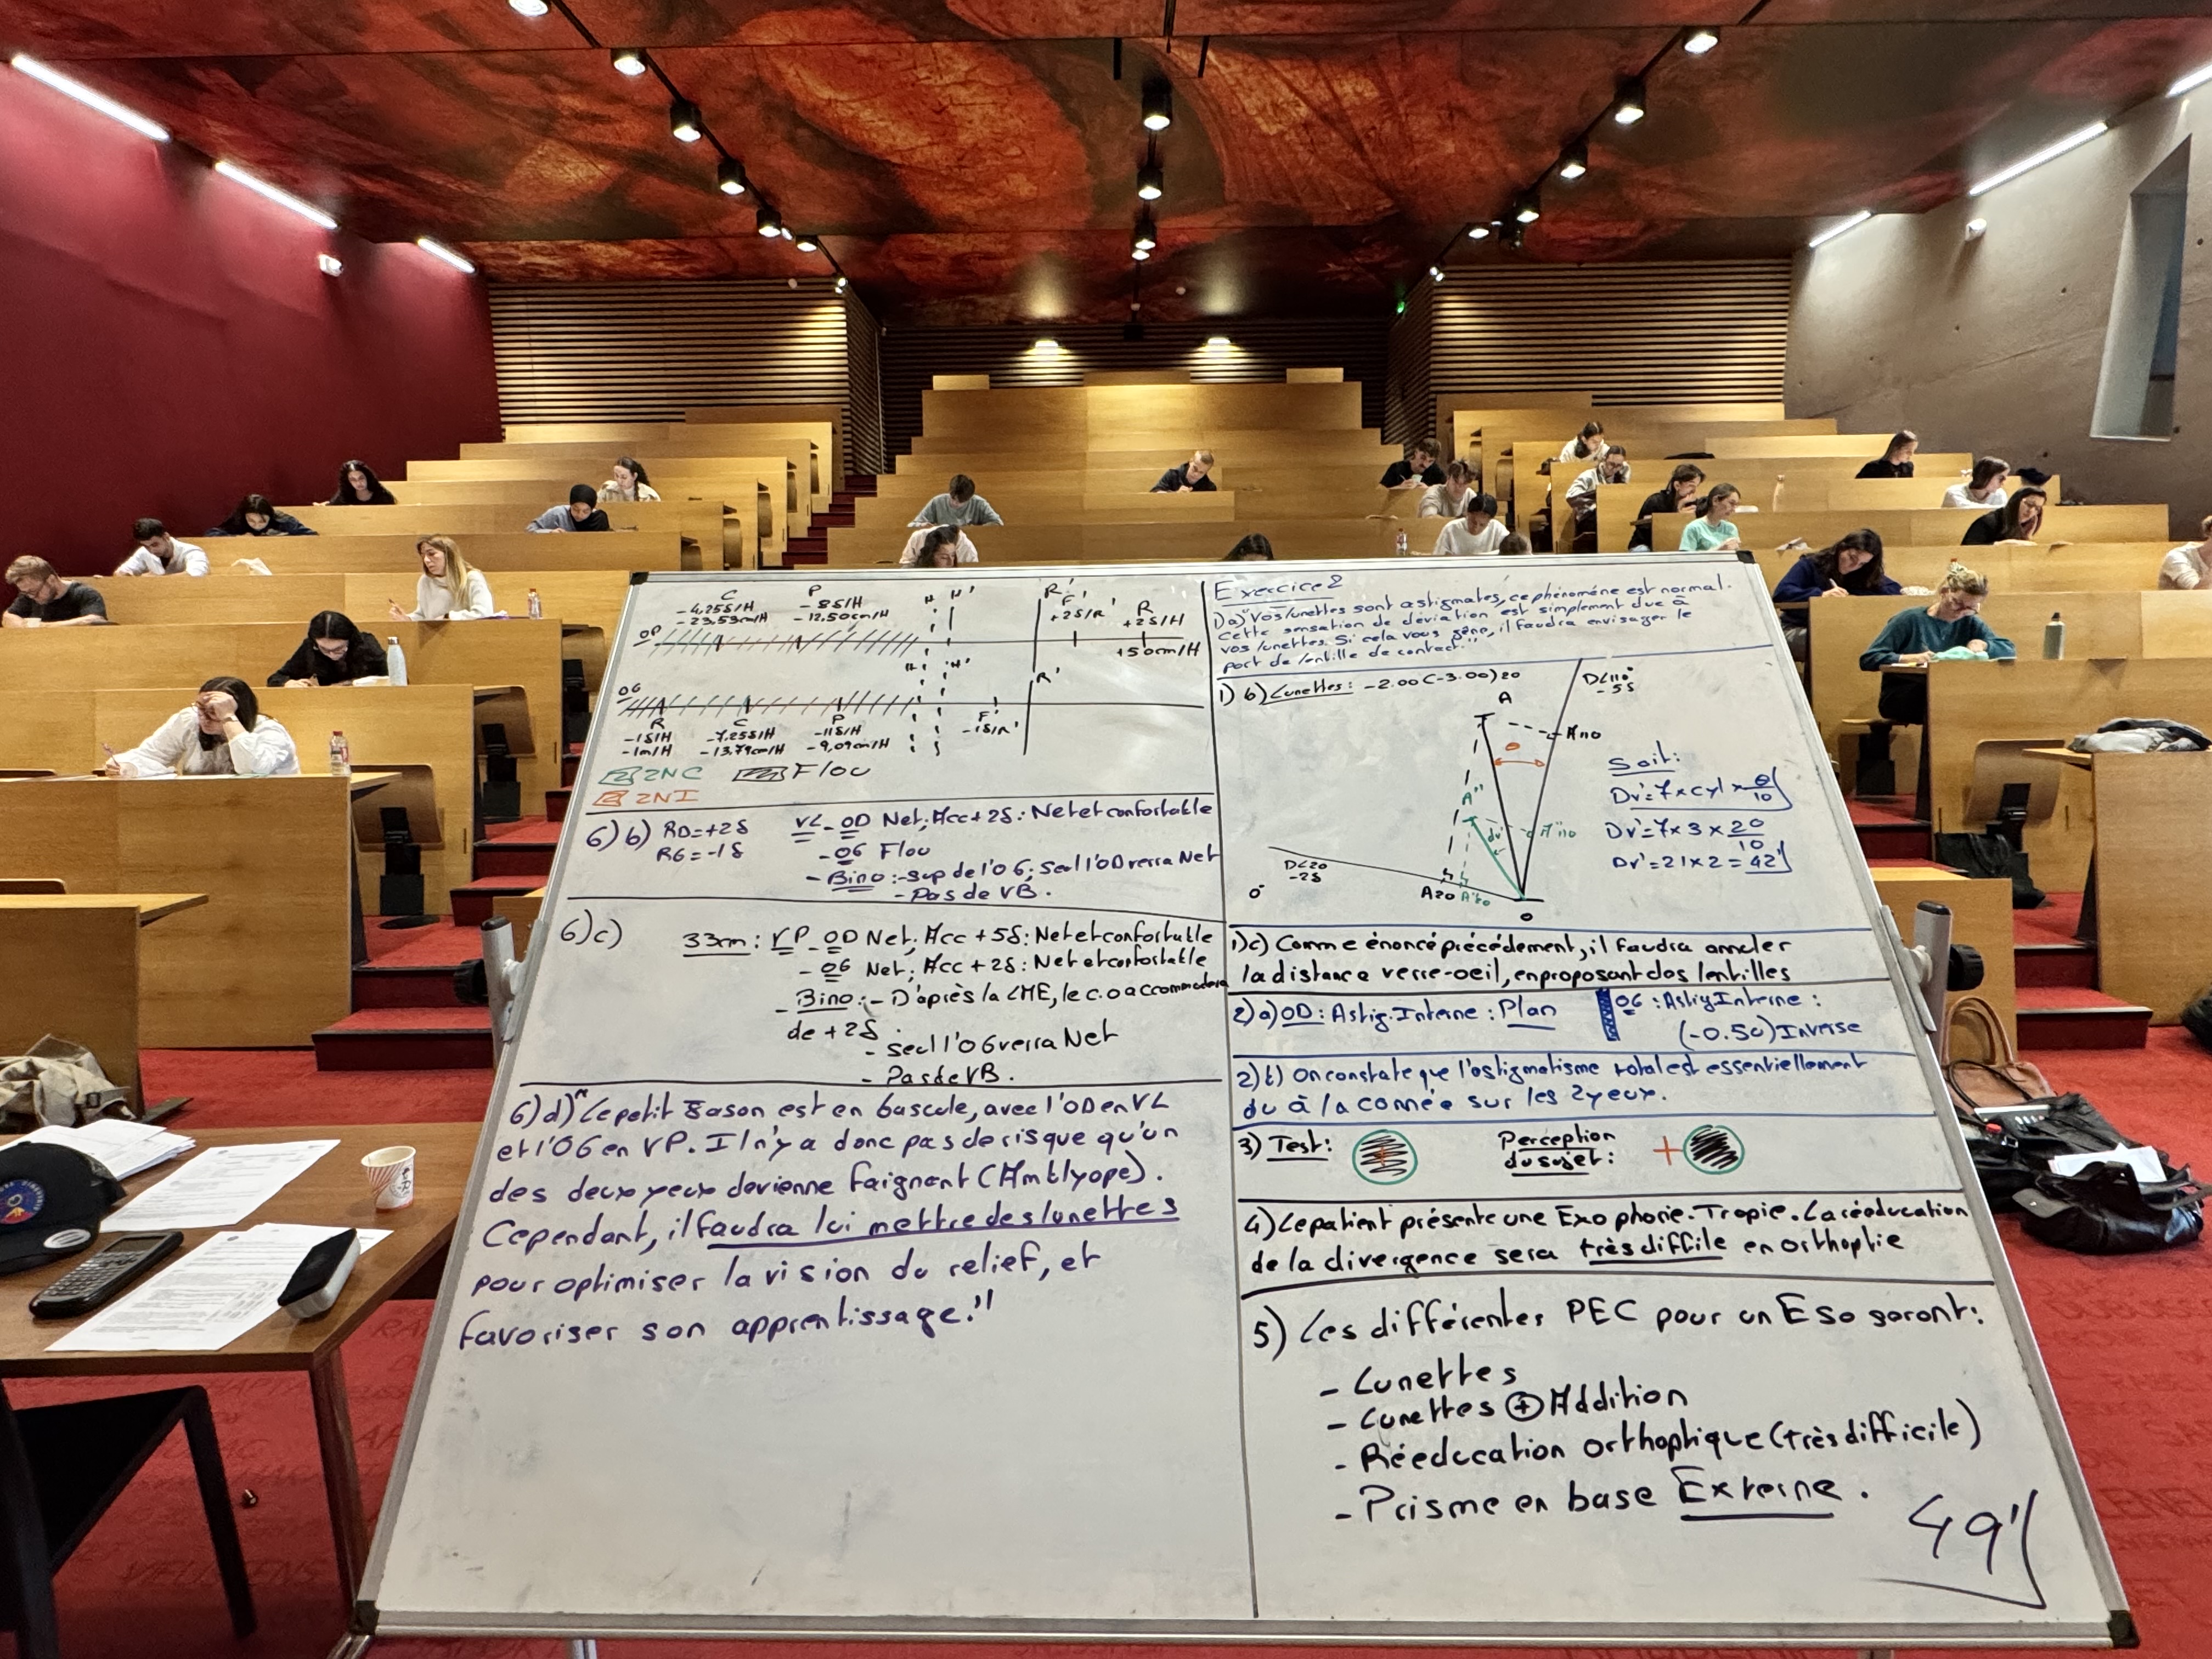 C
-4,25δ/H
-23,53cm/H
P
-8δ/H
-12,50cm/H
H H'
R'
F'
+2δ/R'
R
+2δ/H
+50cm/H
OD
OG
H H'
R'
R
-1δ/H
-1m/H
C
-7,25δ/H
-13,79cm/H
P
-11δ/H
-9,09cm/H
F'
-1δ/R'
ZNC Flou
ZNI
6)b) RD=+2δ
RG=-1δ
VL-OD Net; Acc+2δ: Net et confortable
-OG Flou
-Bino:-Sup de l'OG; seul l'OD verra Net
-Pas de VB.
6)c)
33cm: VP-OD Net; Acc+5δ: Net et confortable
-OG Net; Acc+2δ: Net et confortable
-Bino:-D'après la LME, le c.o accommodera
de +2δ.
-seul l'OG verra Net
-Pas de VB.
6)d)"Le petit Jason est en bascule, avec l'OD en VL
et l'OG en VP. Il n'y a donc pas de risque qu'un
des deux yeux devienne faignant (Amblyope).
Cependant, il faudra lui mettre des lunettes
pour optimiser la vision du relief, et
favoriser son apprentissage!"
Exercice 2
1)a)"Vos lunettes sont astigmates, ce phénomène est normal.
Cette sensation de déviation est simplement due à
vos lunettes. Si cela vous gêne, il faudra envisager le
port de lentille de contact."
1) b) Lunettes: -2.00(-3.00)20
A
D∠110°
-5δ
A110
θ
A''
dv'
A''110
D∠20
-2δ
0°
A20 A''20
O
Soit:
Dv'=7×cyl×θ/10
Dv'=7×3×20/10
Dv'=21×2=42'
1)c) Comme énoncé précédement, il faudra annuler
la distance verre-oeil, en proposant des lentilles
2)a)OD: Astig.Interne: Plan
OG: Astig.Interne:
(-0.50)Inverse
2)b) On constate que l'astigmatisme total est essentiellement
du à la cornée sur les 2 yeux.
3) Test:
Perception
du sujet: +
4) Le patient présente une Exophorie-Tropie. La rééducation
de la divergence sera très diffile en orthoptie
5) Les différentes PEC pour un Eso seront:
- Lunettes
- Lunettes ⊕ Addition
- Rééducation orthoptique (très difficile)
- Prisme en base Externe.
49'